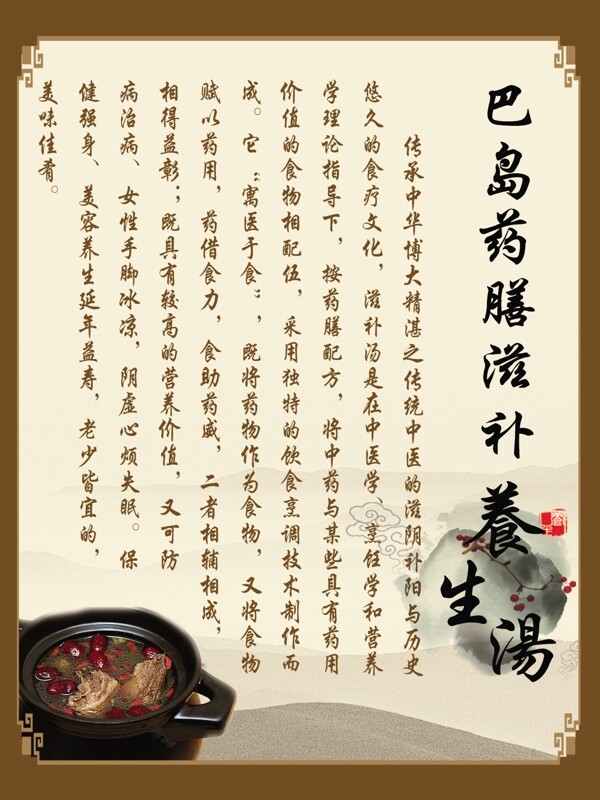 巴岛药膳滋补養生湯
传承中华博大精湛之传统中医的滋阴补阳与历史
悠久的食疗文化，滋补汤是在中医学、烹饪学和营养
学理论指导下，按药膳配方，将中药与某些具有药用
价值的食物相配伍，采用独特的饮食烹调技术制作而
成。它“寓医于食”，既将药物作为食物，又将食物
赋以药用，药借食力，食助药威，二者相辅相成，
相得益彰；既具有较高的营养价值，又可防
病治病、女性手脚冰凉，阴虚心烦失眠。保
健强身、美容养生延年益寿，老少皆宜的，
美味佳肴。